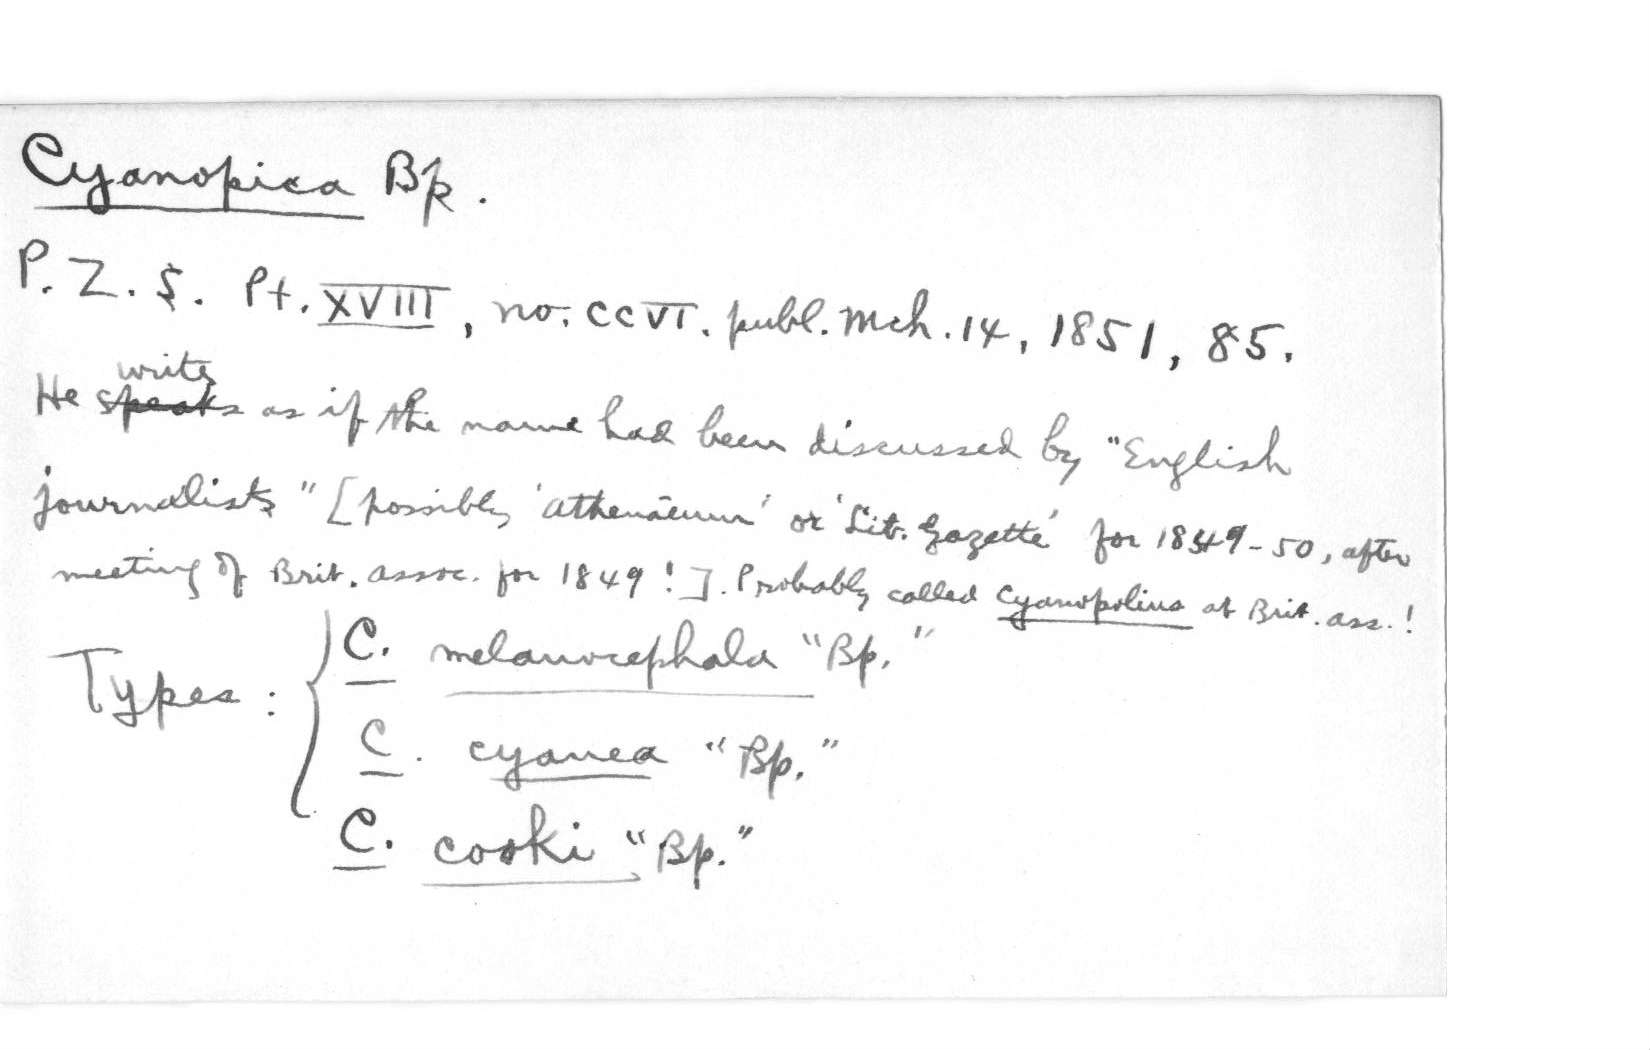 Cyanopica Bp.
P. Z. S. Pt. XVIII, no. CCVI. publ. Mch. 14, 1851, 85.
writes
He speaks as if the name had been discussed by "English
journalists" [possibly 'Athenaeum' or 'Lit. Gazette' for 1849-50, after
meeting of Brit. Assoc. for 1849!]. Probably called Cyanopolius at Brit. Ass.!
Types: C. melanocephala "Bp."
C. cyanea "Bp."
C. cooki "Bp."